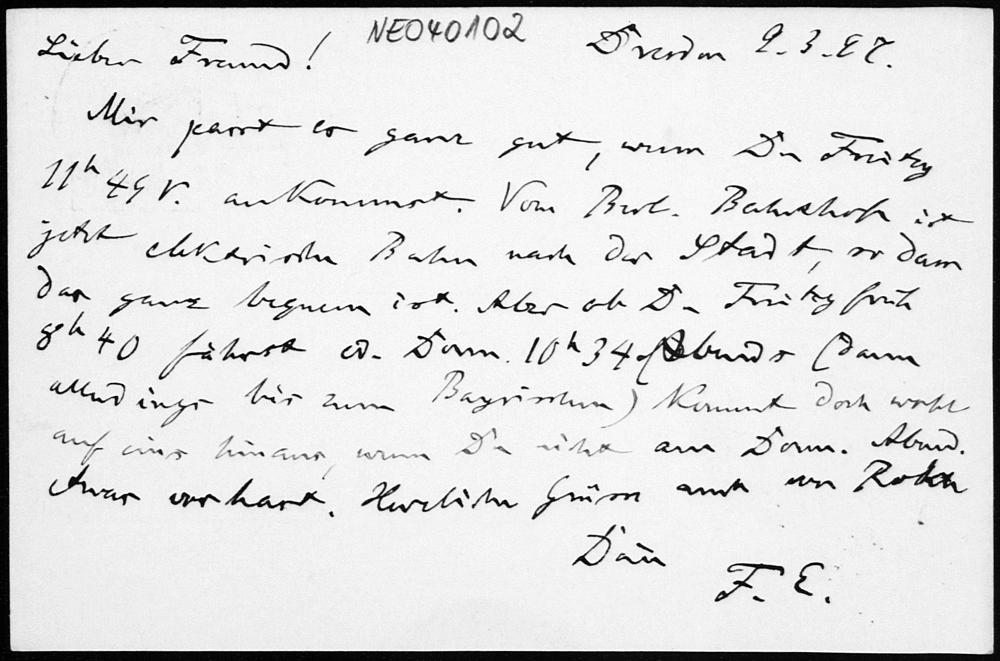 NEO40102
Lieber Freund! Dresden 9.3.97.
Mir passt es ganz gut, wenn Du Freitag
11h 49 V. ankommst. Vom Berl. Bahnhofe ist
jetzt elektrische Bahn nach der Stadt, so dass
das ganz bequem ist. Aber ob Du Freitag früh
8h 40 fährst od. Donn. 10h 34 Abends (dann
allerdings bis zum Bayrischen) kommt doch wohl
auf eins hinaus, wenn Du nicht am Donn. Abend
etwas vorhast. Herzliche Grüsse auch von
Dein
F. E.